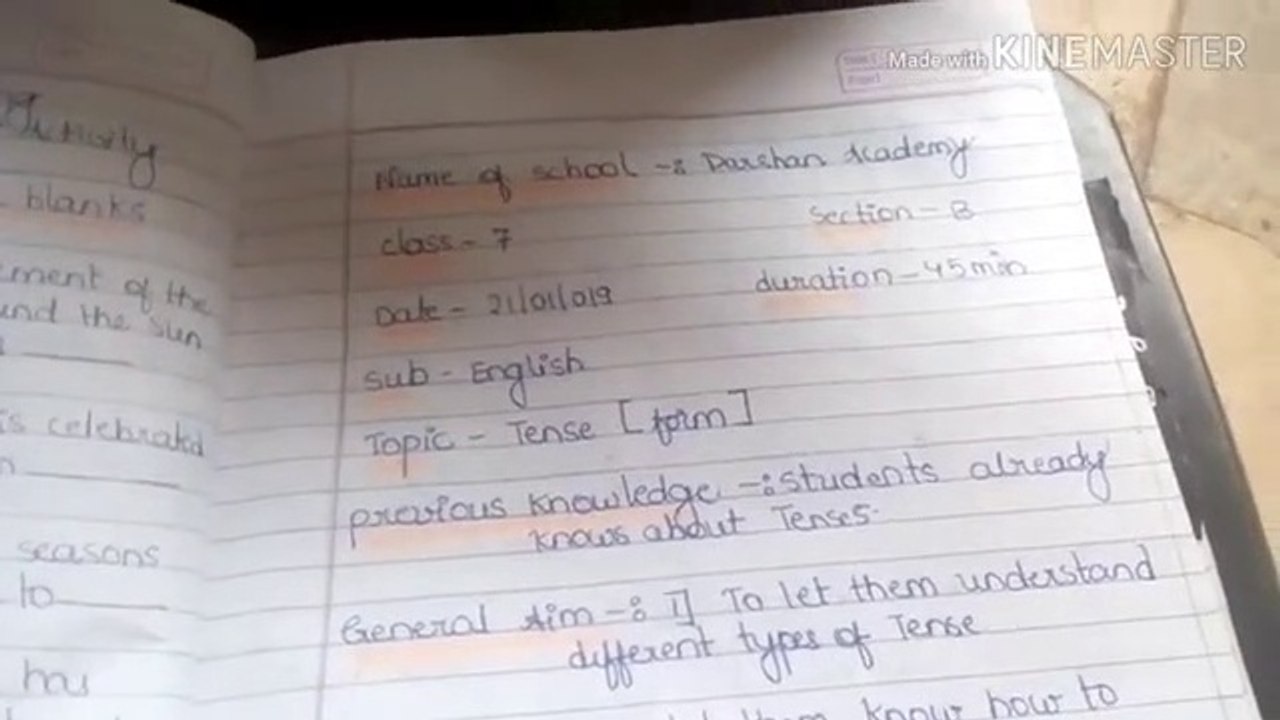 Made with KINEMASTER
Activity
blanks
ment of the
und the sun
is celebrated
seasons
to
has
Name of school -: Darshan Academy
class - 7 section - B
Date - 21/01/019 duration - 45 min
Sub - English
Topic - Tense [form]
previous knowledge -: students already
knows about Tenses.
General Aim -: 1] To let them understand
different types of Tense
them know how to